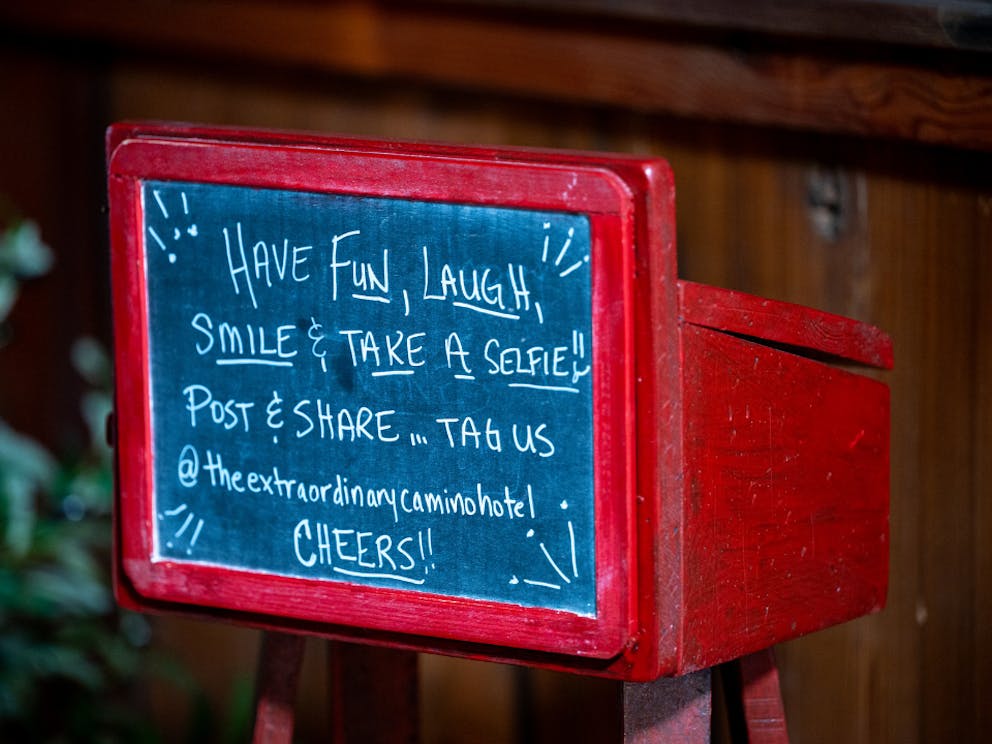 HAVE FUN, LAUGH,
SMILE & TAKE A SELFIE!!
POST & SHARE... TAG US
@theextraordinarycaminohotel
CHEERS!!